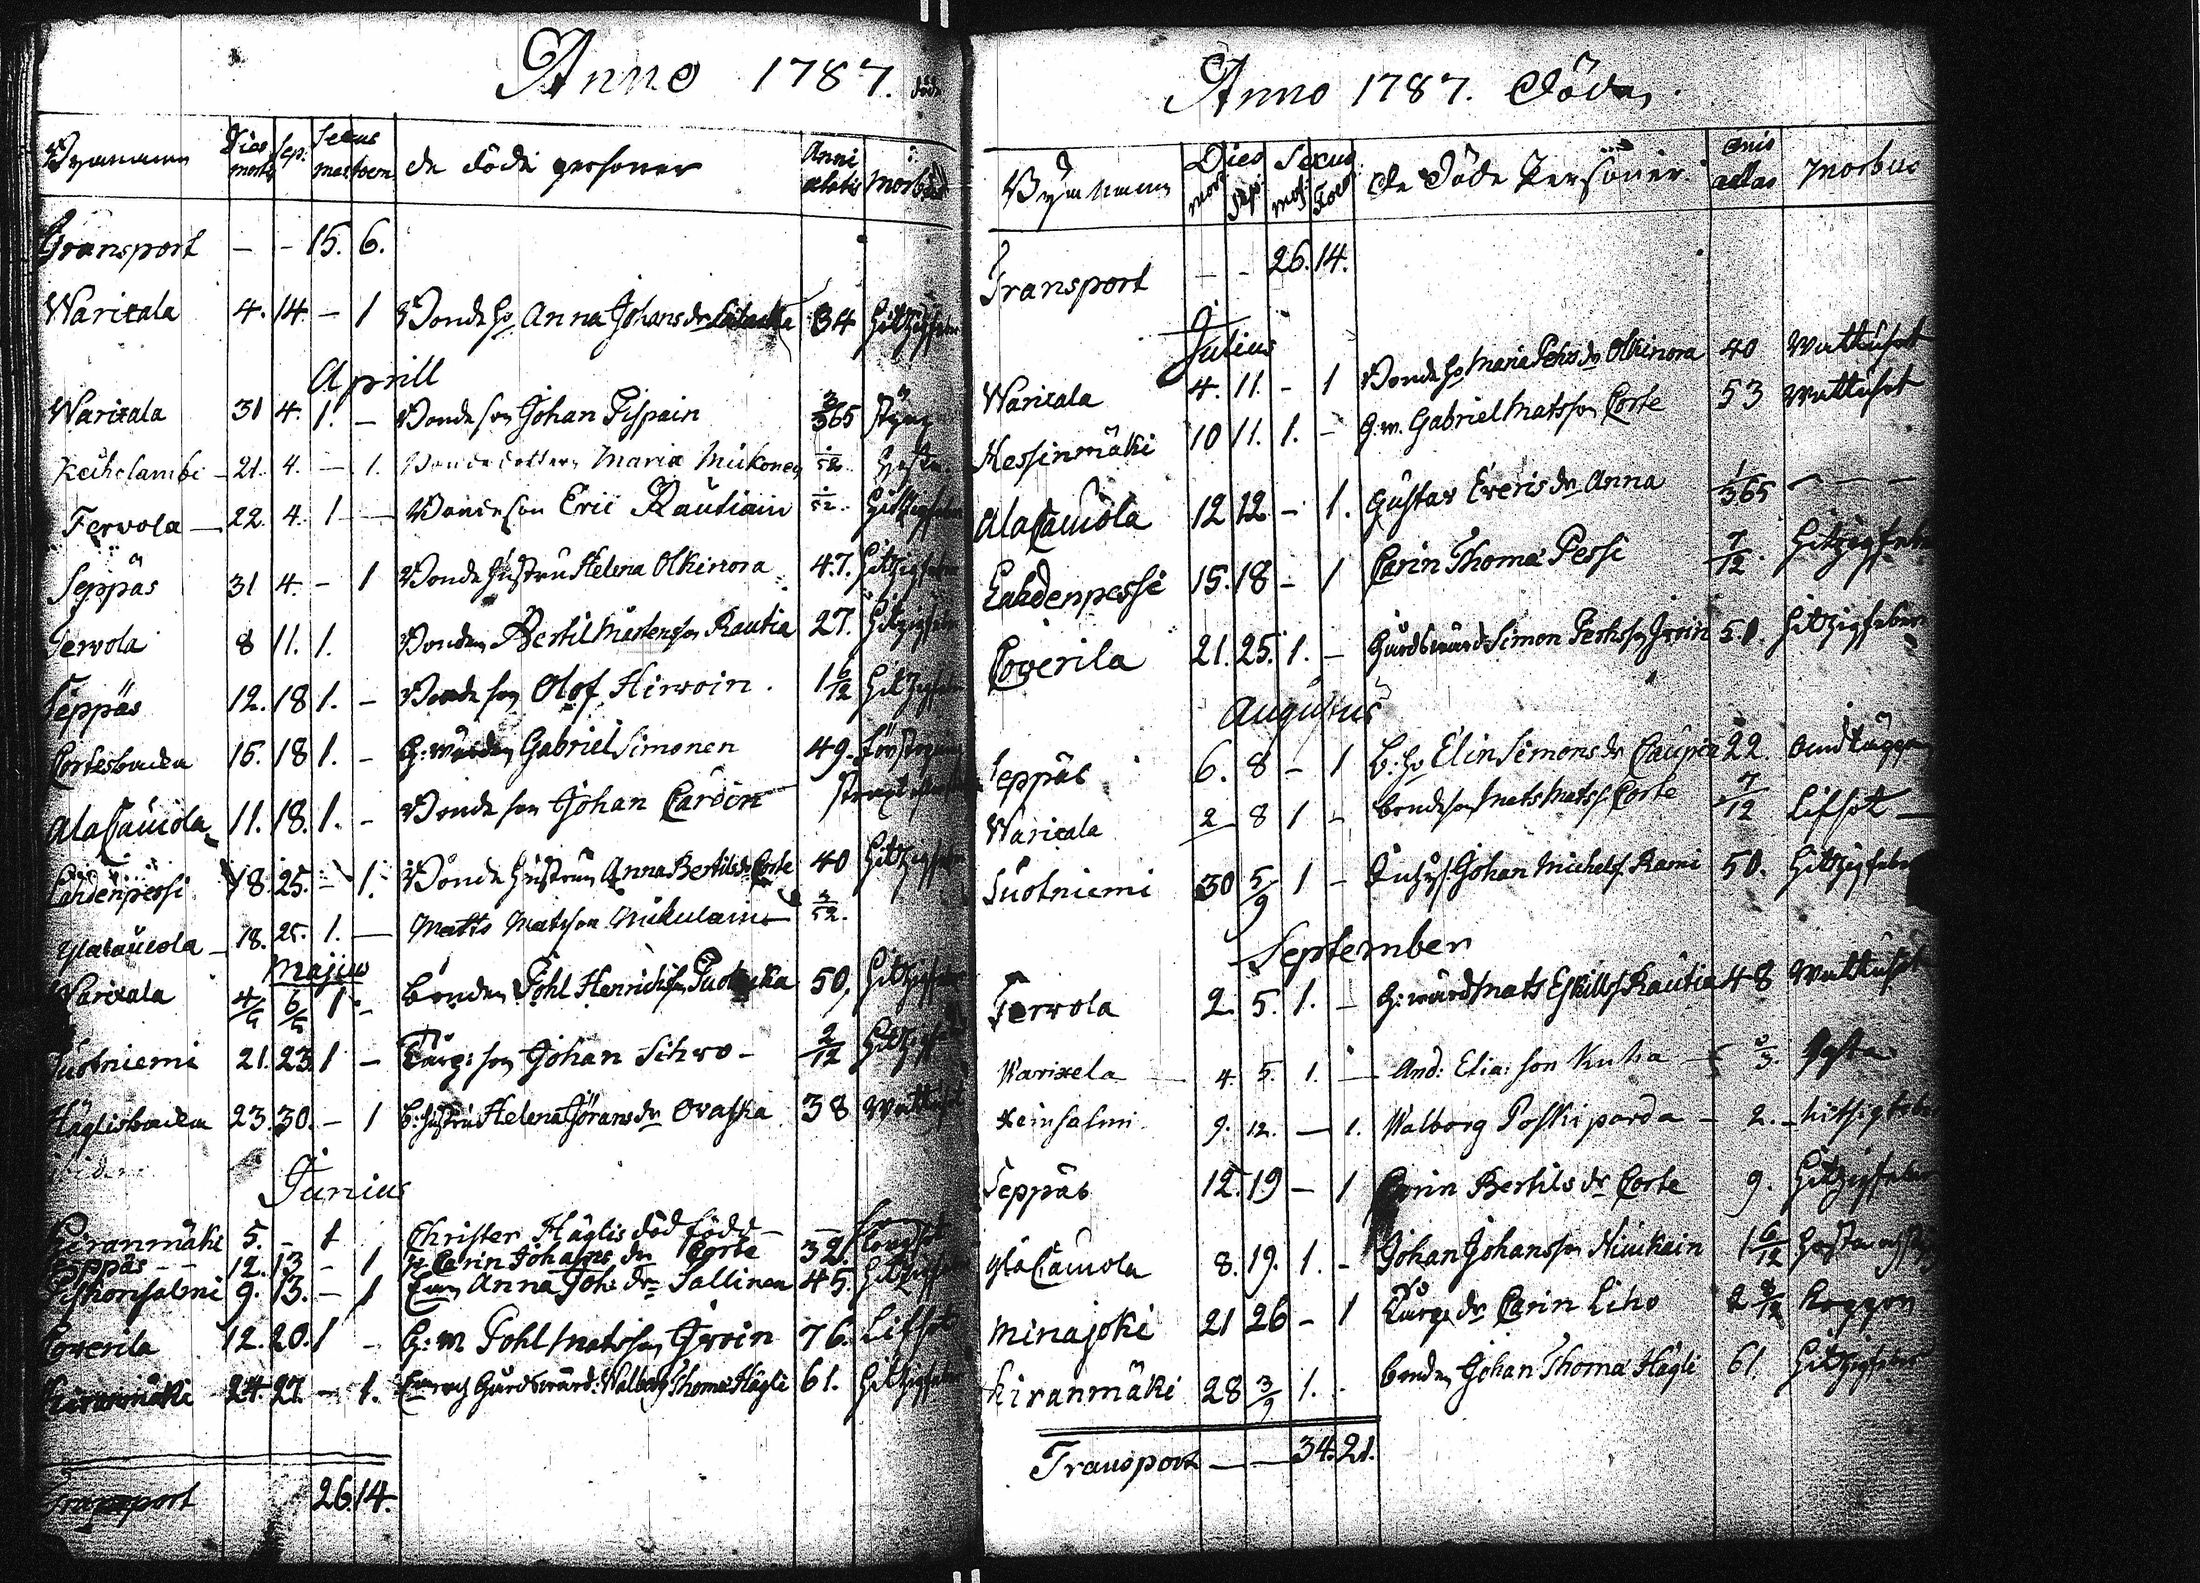 Anno 1787. döde
Bynamnen Dies mortis Sep: Sexus mas foem de döde personer Anni aetatis Morbus
Transport — - 15. 6.
Waricala 4. 14. - 1 Bonde ho Anna Johans dr 34 Hitzigfeber
Aprill
Waricala 31 4. 1. - Bonde son Johan Pispain 3/365 styng
21. 4. - 1. Bonde dotteren Maria Mickonen
Tervola — 22. 4. 1 — Bonde son Eric Rautiain Hitzigfeber
Seppäs 31 4. - 1 Bonde hustru Helena Olkinora 47. Hitzigfeber
Tervola 8 11. 1. Bonden Bertil Mårtensson Rautia 27. Hitzigfeber
Seppäs 12. 18 1. - Bonde son Olof Hirvoin. 1 6/12 Hitzigfeber
Cortesbacka 15. 18 1. - G: wärden Gabriel Simonen 49.
AlaCauiola 11. 18. 1. - Bonde son Johan Caroin
Lahdenpessi 18. 25. - 1. Bonde hustrun Anna Bertils dr Corte 40 Hitzigfeber
18. 25. 1. — Matts Matsson Nikulain
Majus
Waricala 4/5 6/5 1 - bonden Pohl Henrichsson 50. Hitzigfeber
Suotniemi 21. 23. 1 - Torp: son Johan Sihvo - 2/12 Hitzigfeber
Häglisbacka 23. 30. - 1 B: hustru Helena Jörans dr Ovaska 38 Wattusot
Junius
Kiranmäki 5. - 1 Christer Häglis död född —
Seppäs - - 12. 13 - 1 Carin Johans dr Corte 32.
Piskonsalmi 9. 13. - 1 Enn Anna Joh: dr Sallinen 45. Hitzigfeber
Coverila 12. 20. 1 - G: w Pohl Matsson Iivoin 76. Lifsot
Kiranmäki 24. 27. - 1. Gårdswärd: Walborg Thoma Hägli 61. Hitzigfeber
Transport 26. 14.
Anno 1787. Döde.
Bynamnen Dies mort Sep: Sexus mas: Foem de Döde Personer anis aetas Morbus
Transport — - 26. 14.
Julius
Waricala 4. 11. - 1 Bonde ho Maria Pehrs dr Olkinora 40 Wattusot
Hessinmäki 10 11. 1. - G: w. Gabriel Matsson Corte 53 Wattusot
AlaCauiola 12 12. - 1. Gustav Everis dr Anna 1/365 — — —
Lahdenpessi 15. 18 - 1 Carin Thoma Pessi 7/12. Hitzigfeber
Coverila 21. 25. 1. - Gårdswärd Simon Pehrsson Iivoin 50. Hitzigfeber
Augustus
Seppäs 6. 8 - 1 B: ho Elin Simons dr Caupin 22.
Waricala 2 8 1 - bonde son Mats Mats: Corte 7/12 Lifsot —
Suotniemi 30 5/9 1 - Johan Michels: Rami 50. Hitzigfeber
September
Tervola 2. 5. 1. - G: wärd Mats Eskills: Rautia 48 Wattusot
Warixela — 4. 5. 1. — And: Elia: son Kuha — Hosta
Heinsalmi. 9. 12. — 1. Walborg Poskiparda — 2. hitsigfeber
Seppäs 12. 19 - 1 Carin Bertils dr Corte 9. Hitzigfeber
8. 19. 1. - Johan Johansson Niukain 1 6/12
Minajoki 21 26 - 1 Torp: dr Carin Liho 2 Koppor
Kiranmäki 28 3/9 1. - bonden Johan Thoma Hägli 61. Hitzigfeber
Transport — — 34. 21.